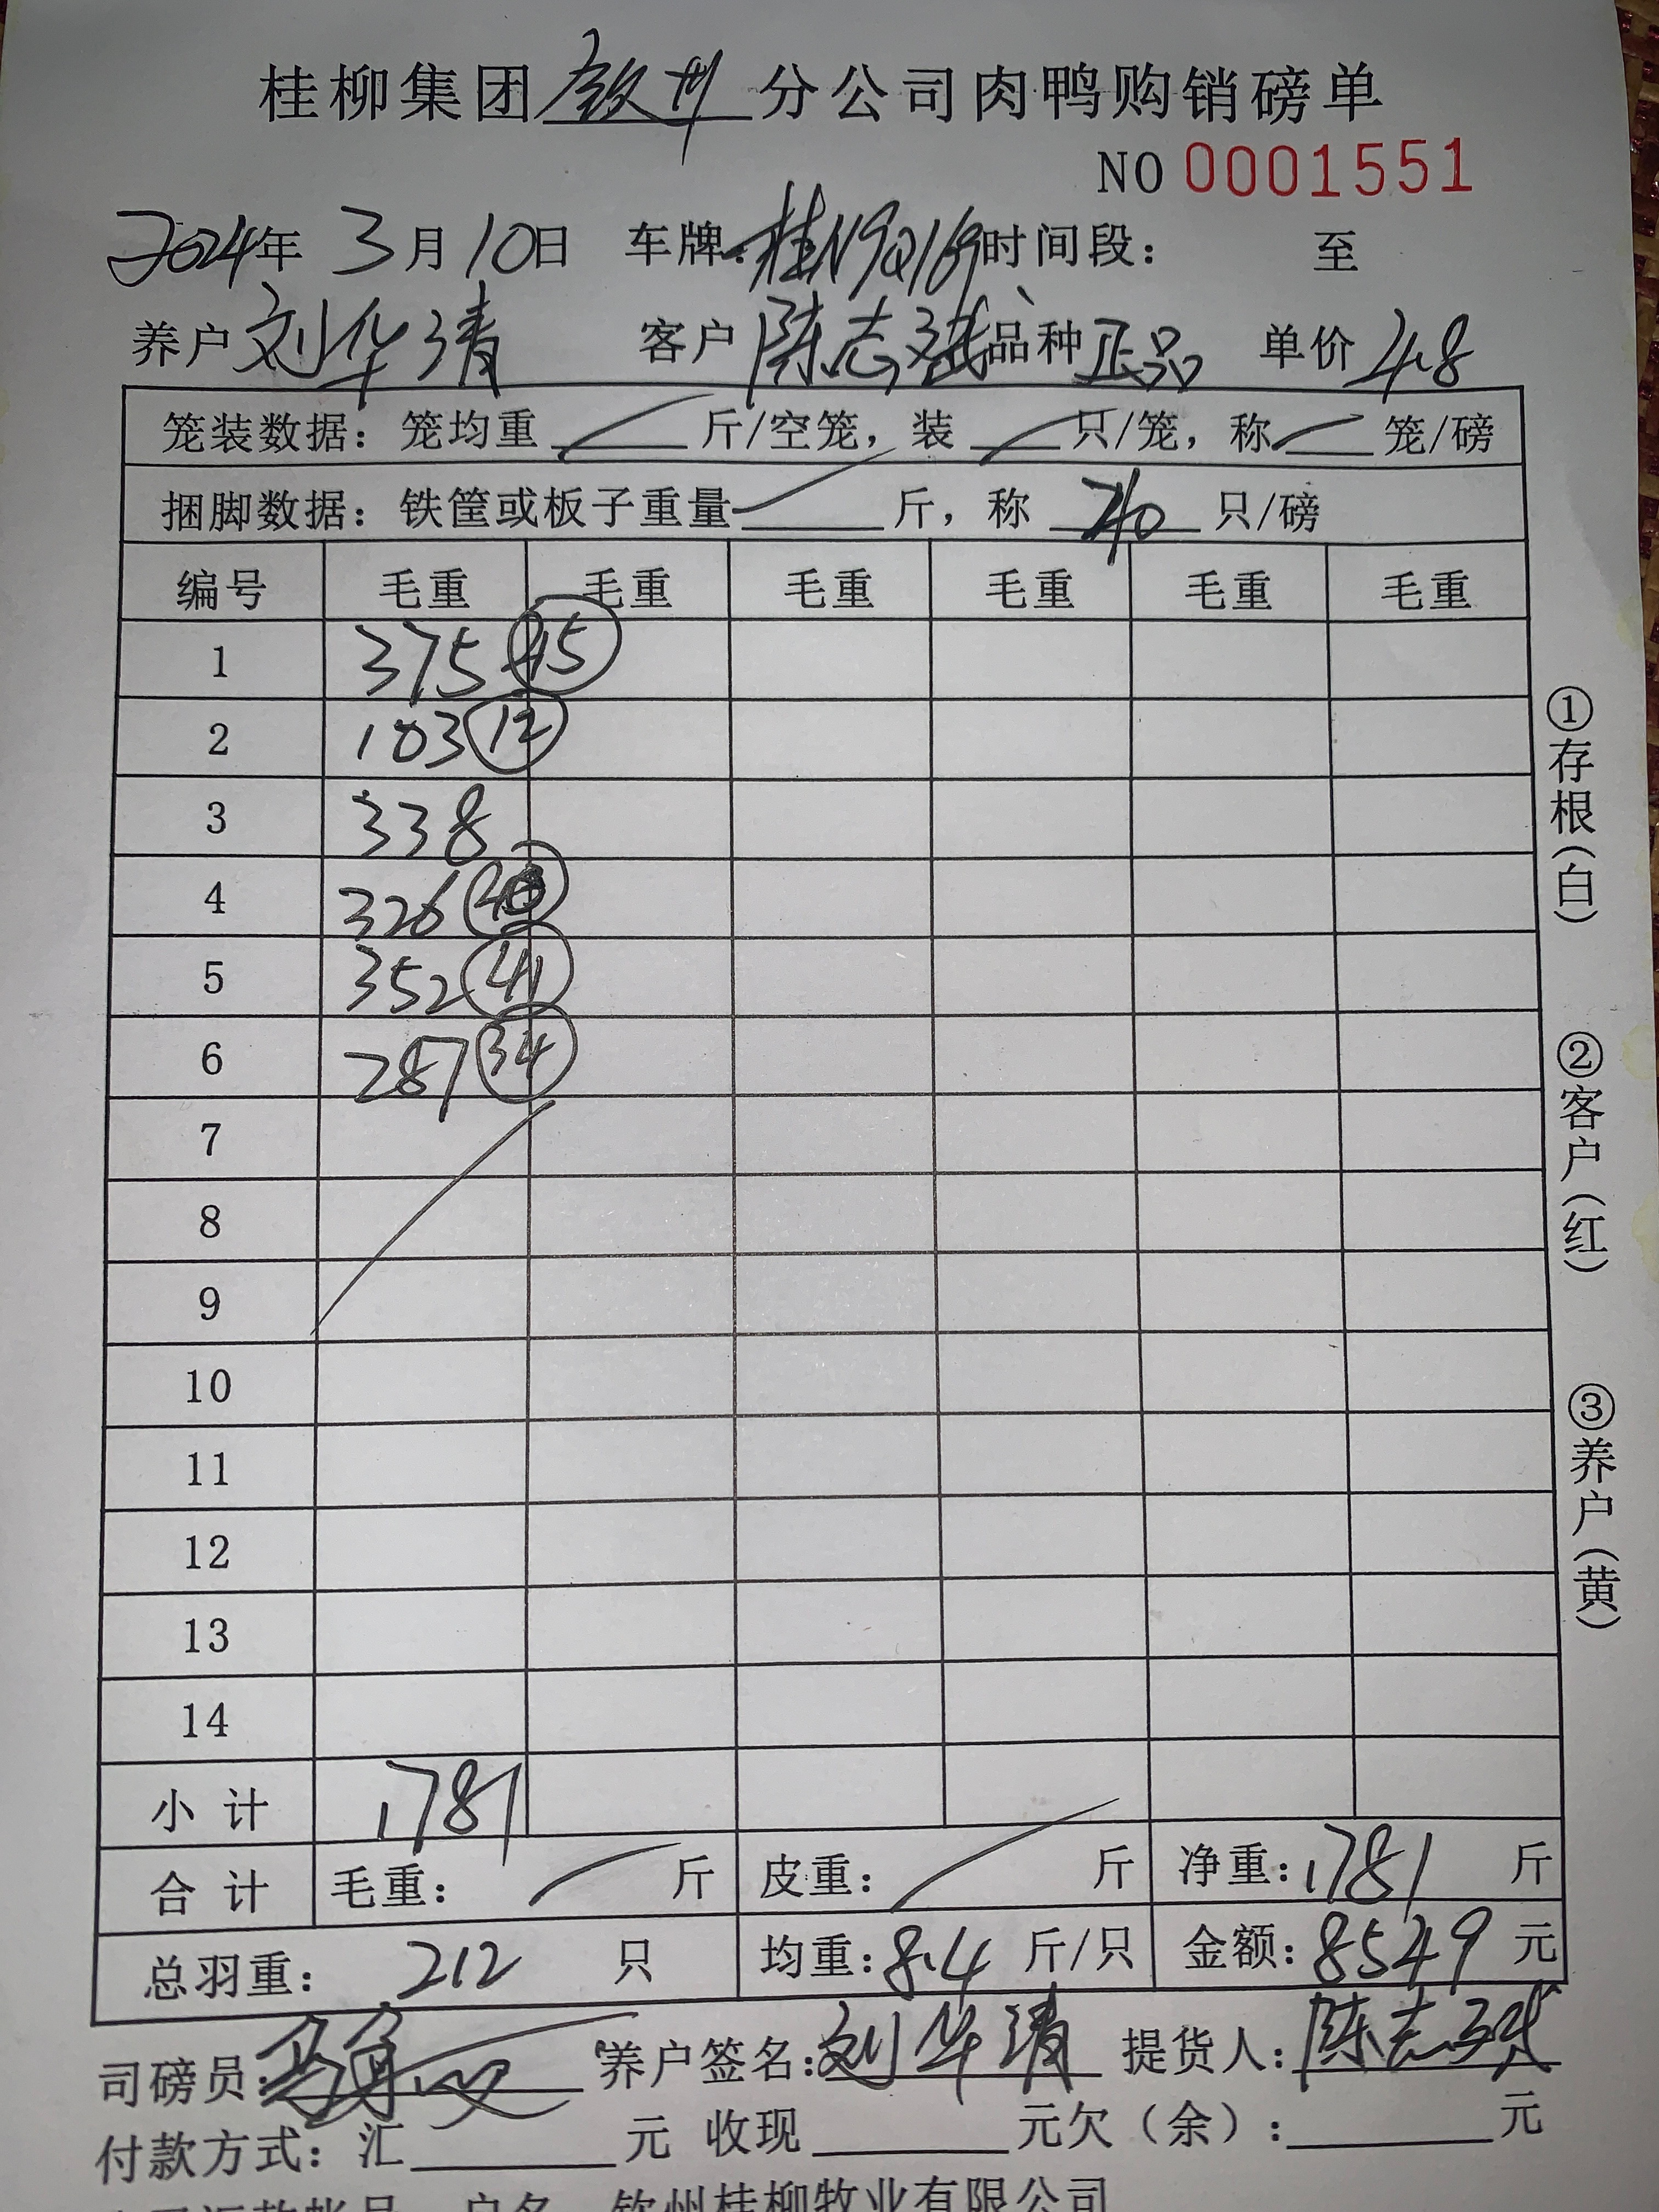 桂柳集团钦州分公司肉鸭购销磅单
NO 0001551
2024年 3月 10日 车牌:桂N9Q169 时间段: 至
养户 刘华清 客户 陈志斌 品种 正品 单价 4.8
笼装数据: 笼均重 斤/空笼, 装 只/笼, 称 笼/磅
捆脚数据: 铁筐或板子重量 斤, 称 40 只/磅
编号 毛重 毛重 毛重 毛重 毛重 毛重
1 375 45
2 103 12
3 338
4 326 40
5 352 41
6 287 34
7
8
9
10
11
12
13
14
小计 1781
合计 毛重: 斤 皮重: 斤 净重: 1781 斤
总羽重: 212 只 均重: 8.4 斤/只 金额: 8549 元
司磅员: 养户签名: 刘华清 提货人: 陈志斌
付款方式: 汇 元 收现 元 欠(余): 元
户名 钦州桂柳牧业有限公司
①存根(白)
②客户(红)
③养户(黄)